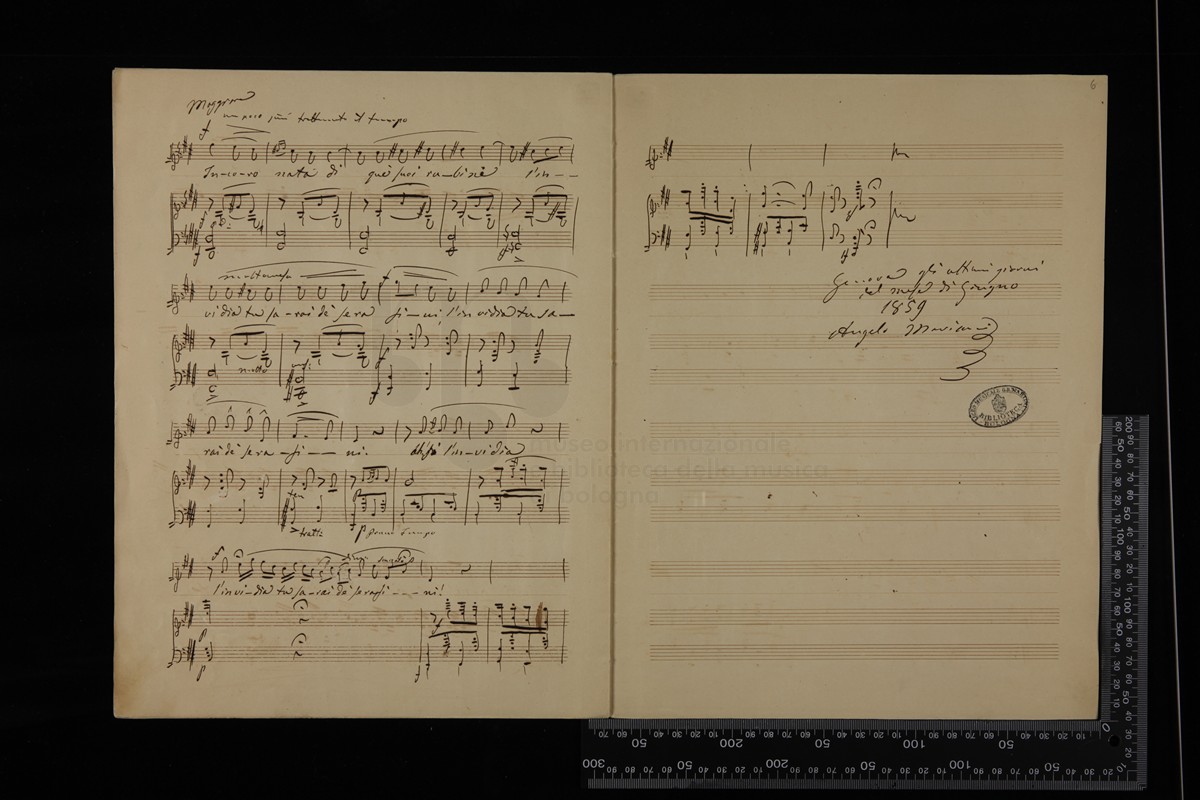 Maggiore
un poco più trattenuto il tempo
In-co-ro nata di quei suoi ru-bini l'in--
vidia tu sa-rai de' sera fi-ni, l'in vidia tu sa-
molto
rai de' sera-fi--ni. l'in-vidia
tratt:
p primo tempo
l'invi-dia tu sa-rai de' serafi---ni!
6
Genova gli ultimi giorni
del mese di Giugno
1859
Angelo Mariani
BIBLIOTECA
BOLOGNA
museo internazionale
biblioteca della musica
bologna